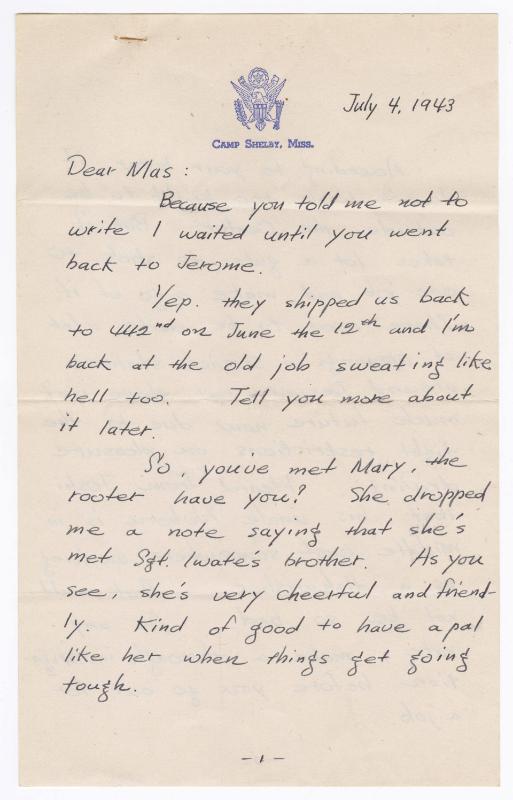 July 4, 1943
CAMP SHELBY, MISS.
Dear Mas:
Because you told me not to
write I waited until you went
back to Jerome.
Yep. they shipped us back
to 442nd on June the 12th and I'm
back at the old job sweating like
hell too. Tell you more about
it later.
So, youve met Mary, the
rooter have you? She dropped
me a note saying that she's
met Sgt. Iwate's brother. As you
see, she's very cheerful and friend-
ly. Kind of good to have a pal
like her when things get going
tough.
- 1 -